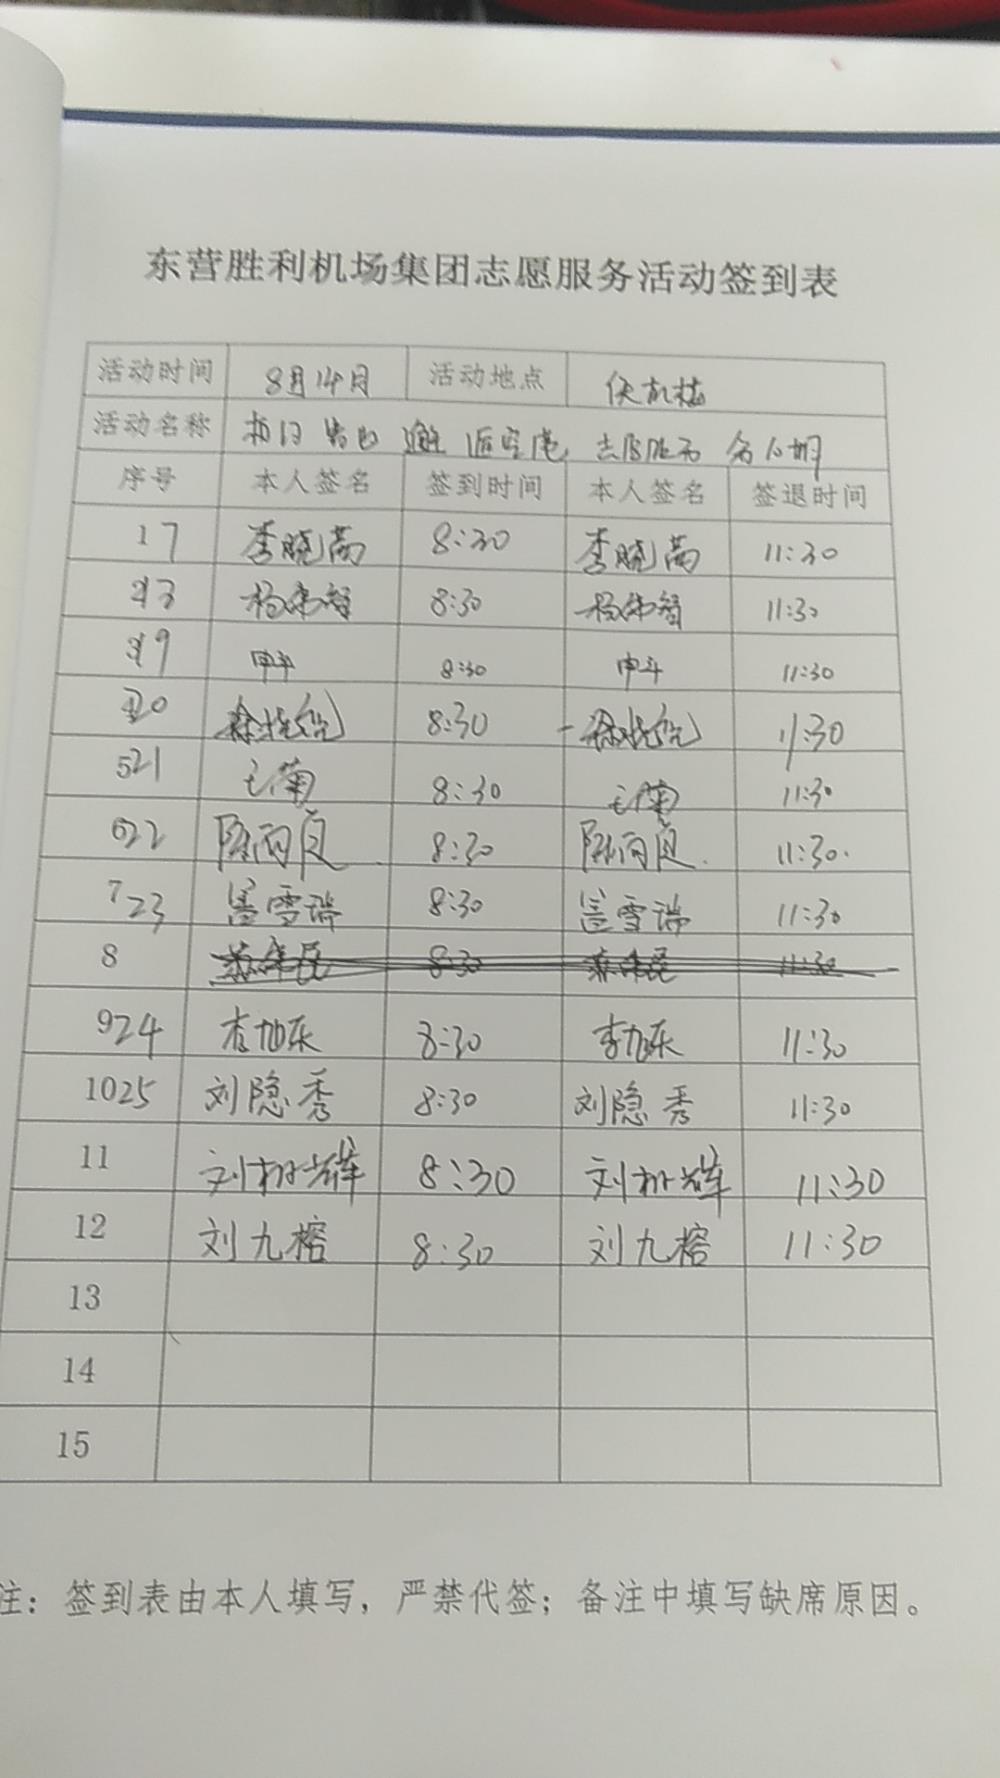 东营胜利机场集团志愿服务活动签到表
活动时间 8月14日 活动地点 候机楼
活动名称
序号 本人签名 签到时间 本人签名 签退时间
17 李晓菡 8:30 李晓菡 11:30
8:30 11:30
19 申斗 8:30 申斗 11:30
20 8:30 11:30
521 王菊 8:30 王菊 11:30
622 陈雨良 8:30 陈雨良 11:30
723 盖雪瑞 8:30 盖雪瑞 11:30
8 8:30 11:30
924 李旭东 8:30 李旭东 11:30
1025 刘隐秀 8:30 刘隐秀 11:30
11 刘树辉 8:30 刘树辉 11:30
12 刘九榕 8:30 刘九榕 11:30
13
14
15
注：签到表由本人填写，严禁代签；备注中填写缺席原因。